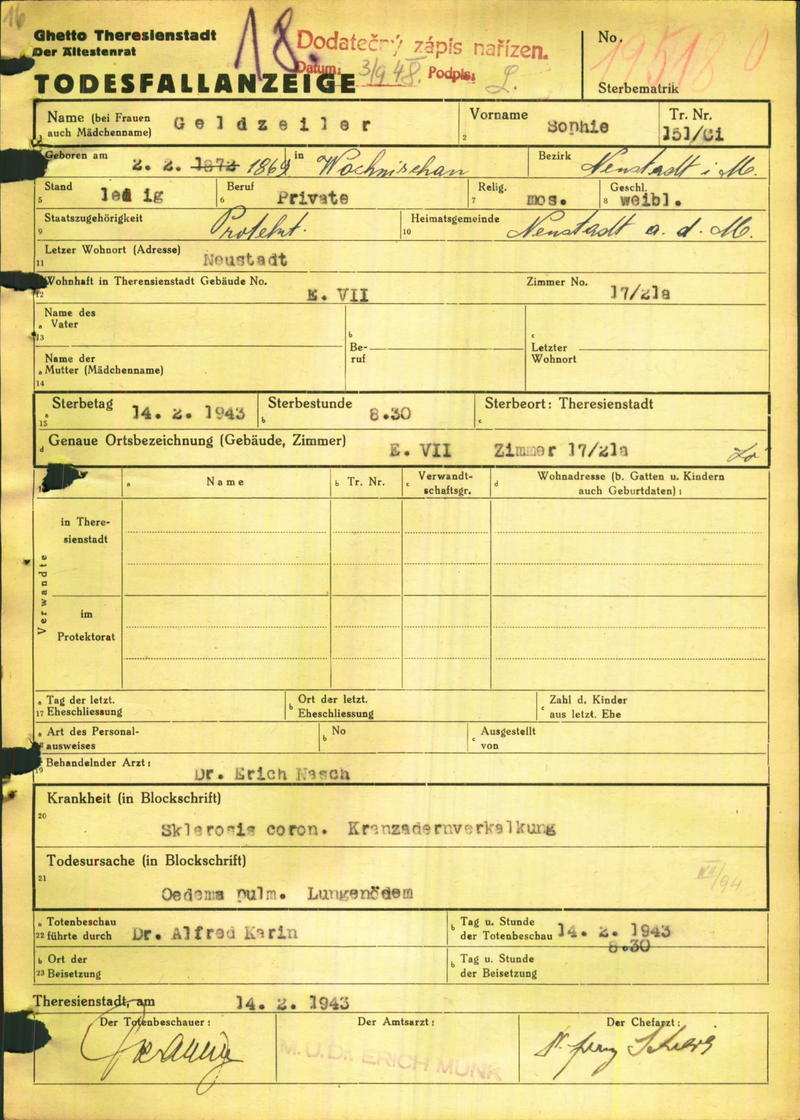 16
Ghetto Theresienstadt
Der Ältestenrat
18
Dodatečný zápis nařízen.
Datum: 3/9 48. Podpis: L.
TODESFALLANZEIGE
No.
Sterbematrik
Name (bei Frauen auch Mädchenname) Geldzeiler
Vorname Sophie
2
Tr. Nr. 151/Ci
Geboren am 2. 2. 1872 1869 in Wochnischan
Bezirk Neustadt i M.
Stand ledig
5
Beruf Private
6
Relig. mos.
7
Geschl. weibl.
8
Staatszugehörigkeit Protekt.
9
Heimatsgemeinde Neustadt a. d. M.
10
Letzer Wohnort (Adresse) Neustadt
11
Wohnhaft in Therensienstadt Gebäude No. E. VII
12
Zimmer No. 17/21a
Name des
a Vater
13
b
Be-
ruf
c
Letzter
Wohnort
Name der
a Mutter (Mädchenname)
14
Sterbetag 14. 2. 1943
a
15
Sterbestunde 8.30
b
Sterbeort: Theresienstadt
c
d Genaue Ortsbezeichnung (Gebäude, Zimmer) E. VII Zimmer 17/21a
a Name
b Tr. Nr.
c Verwandt-
schaftsgr.
d Wohnadresse (b. Gatten u. Kindern
auch Geburtdaten) :
Verwandte
in There-
sienstadt
im
Protektorat
a Tag der letzt.
17 Eheschliessung
b Ort der letzt.
Eheschliessung
c Zahl d. Kinder
aus letzt. Ehe
a Art des Personal-
ausweises
b No
c Ausgestellt
von
Behandelnder Arzt : Dr. Erich Nasch
19
Krankheit (in Blockschrift)
20
Sklerosis coron. Kranzadernverkalkung
Todesursache (in Blockschrift)
21
Oedema pulm. Lungenödem
a Totenbeschau
22 führte durch Dr. Alfred Karin
b Tag u. Stunde
der Totenbeschau 14. 2. 1943
8.30
b Ort der
23 Beisetzung
b Tag u. Stunde
der Beisetzung
Theresienstadt, am 14. 2. 1943
Der Totenbeschauer :
Der Amtsarzt :
M.U.Dr. ERICH MUNK
Der Chefarzt :